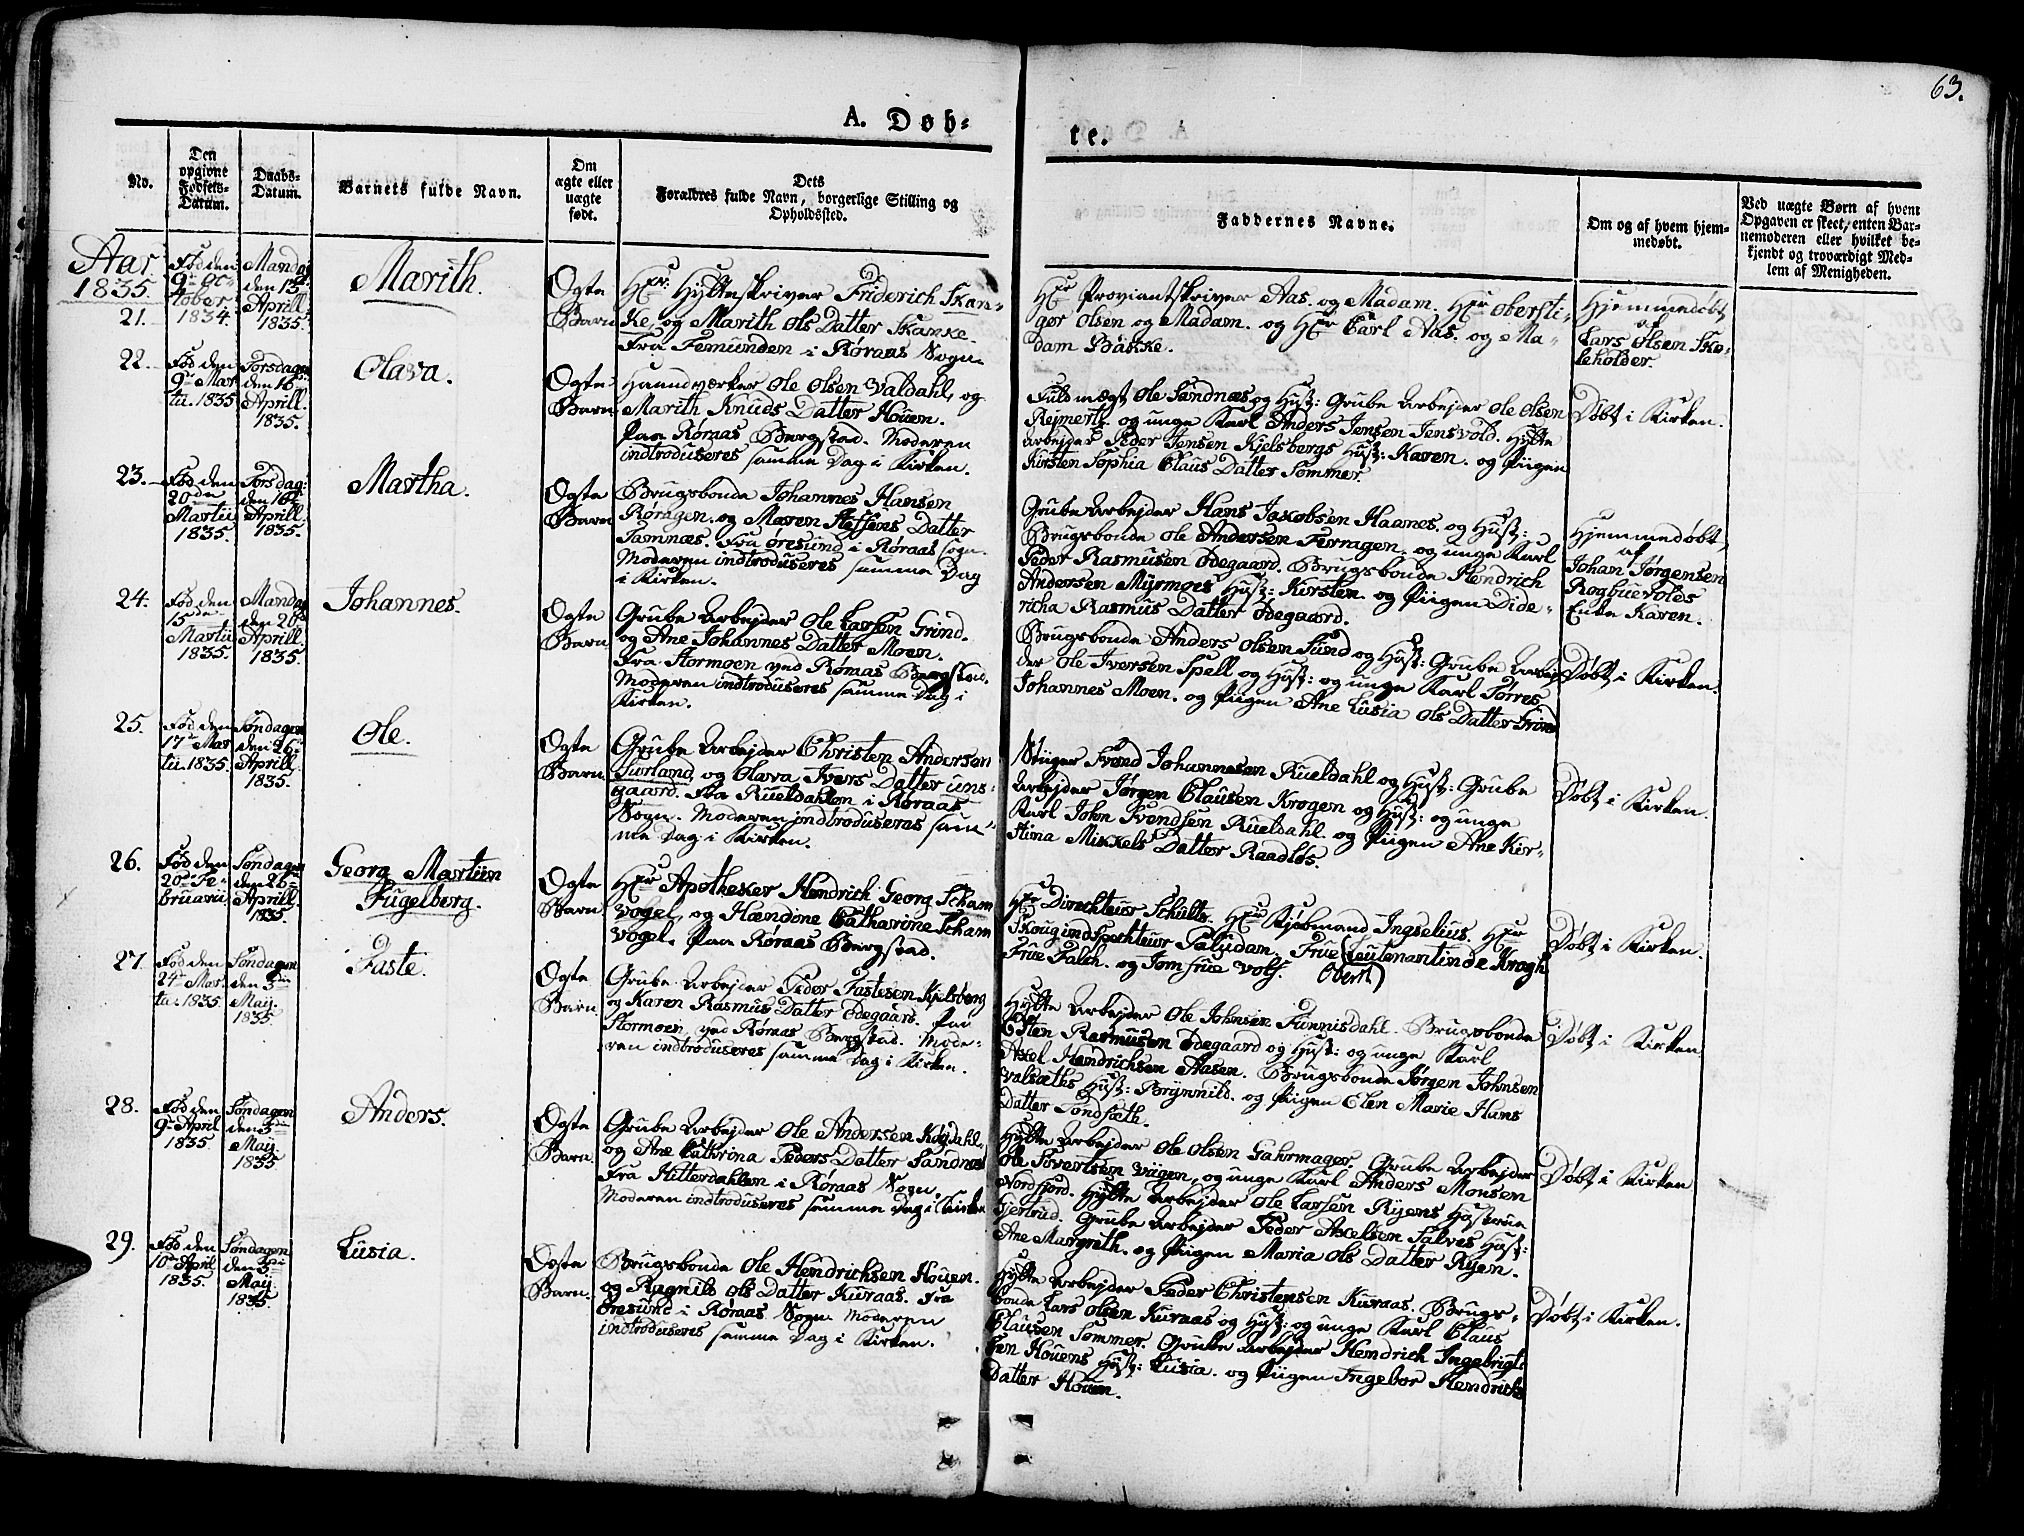 63.
A. Døb-
te.
No.
Den
opgivne
Fødsels-
Datum.
Daabs-
Datum.
Barnets fulde Navn.
Om
ægte eller
uægte
født.
Dets
Forældres fulde Navn, borgerlige Stilling og
Opholdssted.
Faddernes Navne.
Om og af hvem hjem-
medøbt.
Ved uægte Børn af hvem
Opgaven er skeet, enten Bar-
nemoderen eller hvilket be-
kjendt og troværdigt Med-
lem af Menigheden.
Aar
1835.
21.
Fød den
9de Oc-
tober
1834.
Mandag
den 13de
Aprill
1835.
Marith.
Ægte
Barn
Hr: Hytteskriver Friderich Skan-
ke, og Marith Ols Datter Skanke.
Fra Femunden i Røraas Sogn.
Hr Proviantskriver Aas. og Madam. Hr Obersti-
ger Olsen og Madam. og Hr Carl Aas. og Ma-
dam Bakke.
Hjemmedøbt
af
Lars Olsen Sko-
leholder.
22.
Fød den
9de Mar-
tii. 1835
Torsdagen
den 16de
Aprill.
1835.
Olava.
Ægte
Barn
Haandværker Ole Olsen Valdahl, og
Marith Knuds Datter Houen.
Paa Røraas Bergstad. Moderen
indtroduseres samme Dag i Kirken.
Fuldmægt Ole Sandnæs og Hust: Grube Arbejder Ole Olsen
Rejmertz. og unge Karl Anders Jensen Jensvold. Hytte
Arbejder Peder Jensen Kjelsbergs Hust: Karen. og Piigen
Kirsten Sophia Claus Datter Sommer.
Døbt i Kirken.
23.
Fød den
20de
Martii
1835.
Torsdag:
den 16de
Aprill
1835.
Martha.
Ægte
Barn
Brugsbonde Johannes Hansen
Røragen. og Maren Steffens Datter
Tamnæs. Fra Øresund i Røraas Sogn.
Moderen indtroduseres samme Dag
i Kirken.
Grube Arbejder Hans Jakobsen Haanes. og Hust:
Brugsbonde Ole Andersen Ferragen. og unge Karl
Peder Rasmusen Ødegaard. Brugsbonde Hendrich
Andersen Myrmoes Hust: Kirsten. og Piigen Dide-
richa Rasmus Datter Ødegaard.
Hjemmedøbt
af
Johan Jørgensen
Rogbuevolds
Enke Karen.
24.
Fød den
15de
Martii
1835.
Mandag
den 20de
Aprill
1835.
Johannes.
Ægte
Barn
Grube Arbejder Ole Larsen Grind.
og Ane Johannes Datter Moen.
Fra Stormoen ved Røraas Bergstad.
Moderen indtroduseres samme Dag i
Kirken.
Brugsbonde Anders Olsen Sund og Hust: Grube Arbej-
der Ole Iversen Spell og Hust: og unge Karl Tørres
Johannes Moen. og Piigen Ane Lusia Ols Datter Grind
Døbt i Kirken.
25.
Fød den
17de Mar
tii. 1835.
Søndagen
den 26de
Aprill.
1835.
Ole.
Ægte
Barn
Grube Arbejder Christen Andersen
Surland, og Olava Ivers Datter Uns-
gaard. Fra Rueldahlen i Røraas
Sogn. Moderen indtroduseres sam-
me Dag i Kirken.
Stiiger Svend Johannesen Rueldahl og Hust: Grube
Arbejder Jørgen Clausen Krogen og Hust: og unge
Karl John Svendsen Rueldahl. og Piigen Ane Kir-
stina Mikkels Datter Raadløs.
Døbt i Kirken.
26.
Fød den
20de Fe-
bruarii
Søndagen
den 26de
Aprill
1835
Georg Martin
Fugelberg.
Ægte
Barn
Hr Apotheker Hendrich Georg Scham
Vogel, og Hændine Catharine Scham
Vogel. Paa Røraas Bergstad.
Hr Direchteur Schults. Hr Kjøbmand Ingselius. Hr
Skouginspechteur Paludam. Frue (Leutenantinde Krogh
Frue Falch. og Jomfrue Wolf. Oberst)
Døbt i Kirken.
27.
Fød den
24de Mar-
tii. 1835
Søndagen
den 3die
Maij.
1835.
Faste.
Ægte
Barn
Grube Arbejder Peder Fastesen Kjelsberg
og Karen Rasmus Datter Ødegaard. Paa
Stormoen ved Røraas Bergstad. Mode-
ren indtroduseres samme Dag i Kirken.
Hytte Arbejder Ole Johnsen Funnisdahl. Brugsbonde
Elten Rasmusen Ødegaard og Hust: og unge Karl
Axel Hendrichsen Aasen. Brugsbonde Jørgen Johnsen
Valsæths Hust: Brynnild. og Piigen Elen Marie Hans
Datter Sandfæth.
Døbt i Kirken
28.
Fød den
9de April
1835
Søndagen
den 3die
Maij
1835
Anders.
Ægte
Barn.
Grube Arbejder Ole Andersen Kojdahl.
og Ane Cathrina Peders Datter Sandnæs
Fra Hitterdahlen i Røraas Sogn.
Moderen indtroduseres samme Dag i Kirken
Hytte Arbejder Ole Olsen Gahrmager. Grube Arbejder
Ole Sivertsen Viigen, og unge Karl Anders Monsen
Nordfjord. Hytte Arbejder Ole Larsen Ryens Hustrue
Gjertrud. Grube Arbejder Peder Axelsen Salves Hust:
Ane Margreth. og Piigen Maria Ols Datter Ryen.
Døbt i Kirken
29.
Fød den
10de April
1835.
Søndagen
den 3die
Maij
1835.
Lusia.
Ægte
Barn.
Brugsbonde Ole Hendrichsen Houen.
og Ragnild Ols Datter Kuraas. Fra
Øresund i Røraas Sogn Moderen
indtroduseres samme Dag i Kirken.
Hytte Arbejder Peder Christensen Kuraas. Brugs-
bonde Lars Olsen Kuraas og Hust: og unge Karl Claus
Clausen Sommer. Grube Arbejder Hendrich Ingebrigt
sen Houens Hust: Lusia. og Piigen Ingebor Hendrichs
Datter Houen.
Døbt i Kirken.